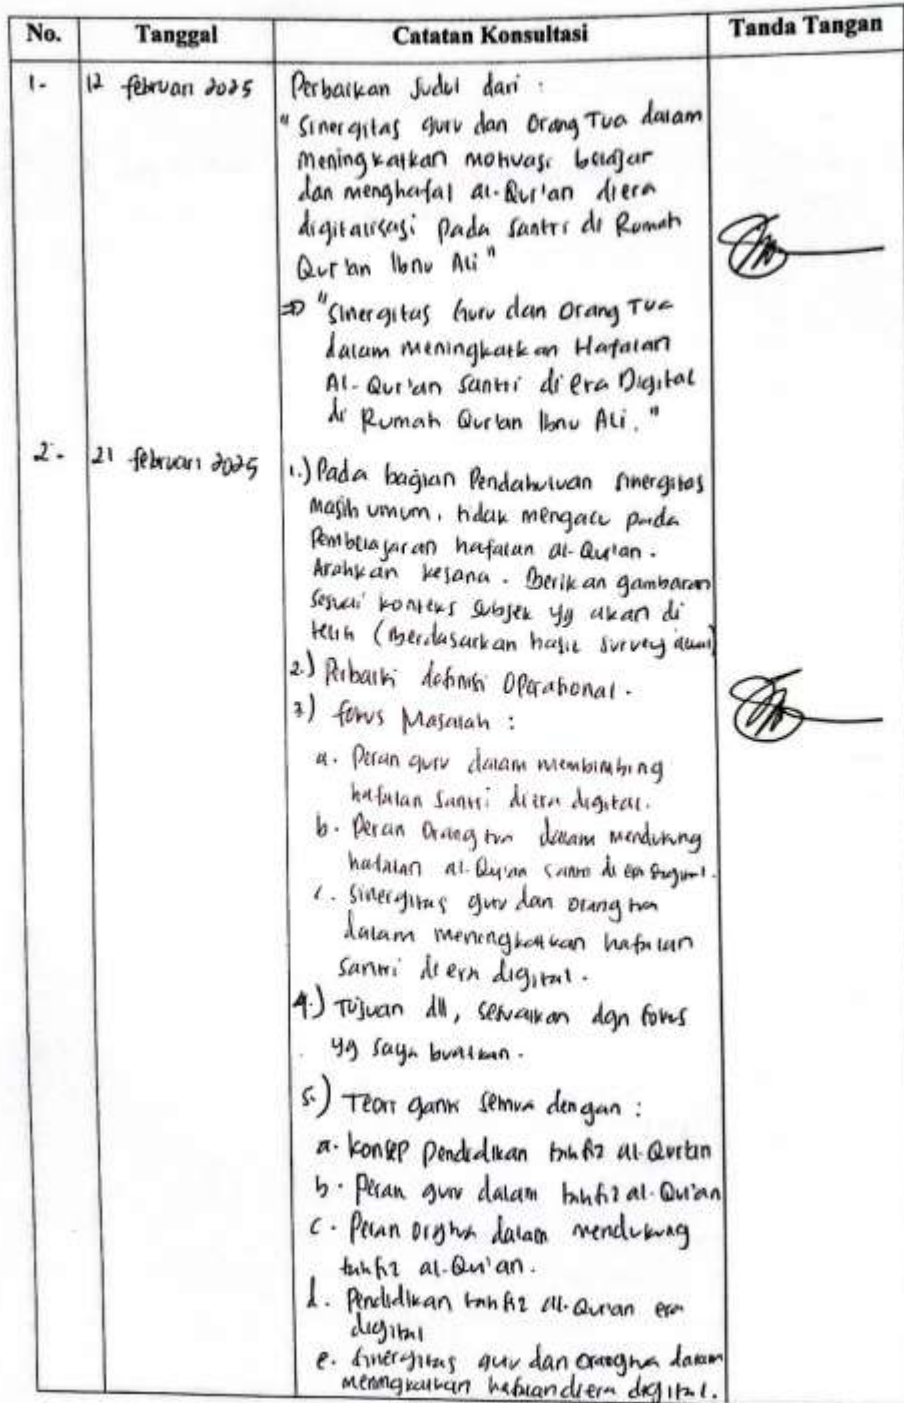 No. Tanggal Catatan Konsultasi Tanda Tangan
1. 12 februari 2025 Perbaikan Judul dari :
"Sinergitas guru dan Orang Tua dalam
Meningkatkan motivasi belajar
dan menghafal al-Qur'an diera
digitalisasi pada Santri di Rumah
Qur'an Ibnu Ali"
⇒ "Sinergitas Guru dan Orang Tua
dalam Meningkatkan Hafalan
Al-Qur'an Santri di Era Digital
di Rumah Qur'an Ibnu Ali."
2. 21 februari 2025 1.) Pada bagian Pendahuluan sinergitas
masih umum, tidak mengacu pada
Pembelajaran hafalan al-Qur'an.
Arahkan kesana. Berikan gambaran
sesuai konteks subjek yg akan di
(Berdasarkan hasil survey awal)
2.) Perbaiki definisi Operasional.
3) fokus Masalah :
a. Peran guru dalam membimbing
hafalan Santri diera digital.
b. Peran Orang tua dalam mendukung
hafalan al-Qur'an santri di era digital.
c. Sinergitas guru dan orang tua
dalam meningkatkan hafalan
Santri di era digital.
4.) Tujuan dll, sesuaikan dgn fokus
yg saya buatkan.
5.) Teori ganti semua dengan :
a. Konsep Pendidikan tahfiz al-Qur'an
b. Peran guru dalam tahfiz al-Qur'an
c. Peran orgtua dalam mendukung
tahfiz al-Qur'an.
d. Pendidikan tahfiz al-Qur'an era
digital
e. Sinergitas guru dan orangtua dalam
meningkatkan hafalan diera digital.